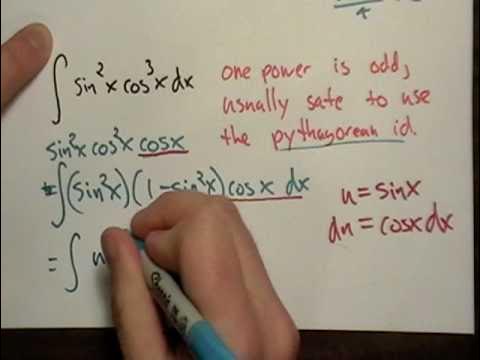 4
∫ sin²x cos³x dx
one power is odd,
usually safe to use
the pythagorean id.
sin²x cos²x cosx
= ∫ (sin²x) (1 - sin²x) cos x dx
u = sinx
du = cosx dx
= ∫ u